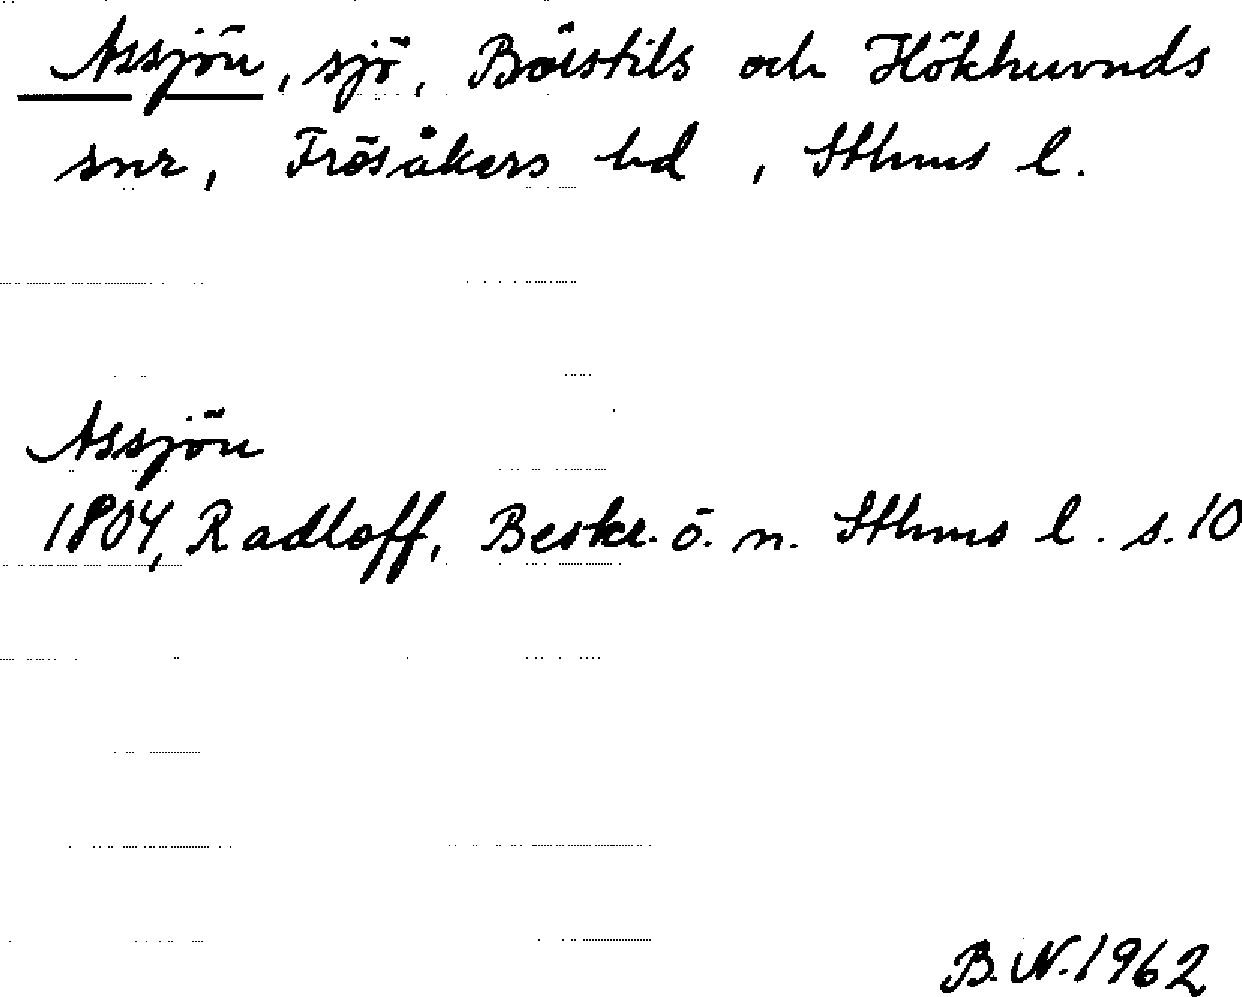 Assjön, sjö, Börstils och Hökhuvuds
snr, Frösåkers hd, Sthms l.
Assjön
1804, Radloff, Beskr. ö. n. Sthms l. s. 10
B.N. 1962